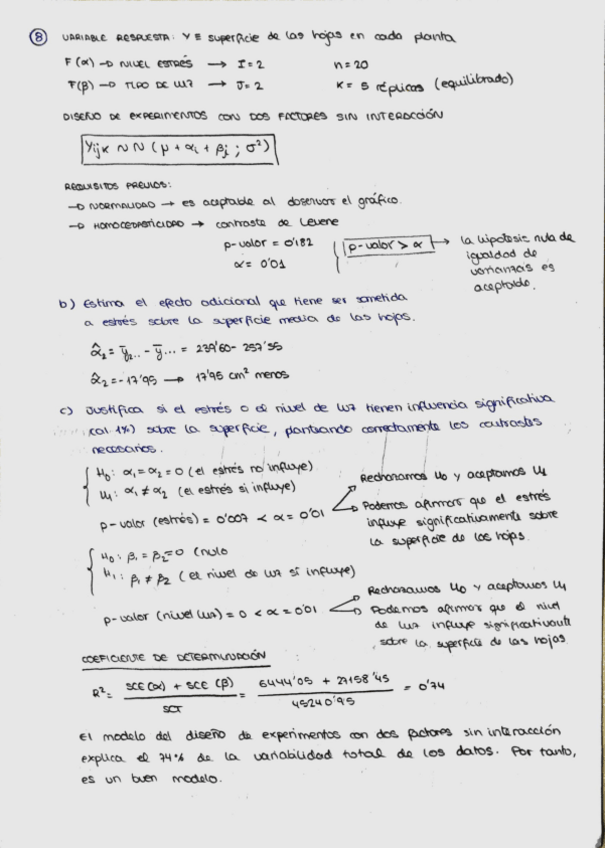 8 VARIABLE RESPUESTA: Y ≡ superficie de las hojas en cada planta
F(α) → NIVEL ESTRÉS → I = 2 n = 20
F(β) → TIPO DE LUZ → J = 2 K = 5 réplicas (equilibrado)
DISEÑO DE EXPERIMENTOS CON DOS FACTORES SIN INTERACCIÓN
Yijk ~ N (μ + αi + βj ; σ²)
REQUISITOS PREVIOS:
→ NORMALIDAD → es aceptable al observar el gráfico.
→ HOMOCEDASTICIDAD → contraste de Levene
p-valor = 0'182
α = 0'01
p-valor > α → la hipótesis nula de
igualdad de
varianzas es
aceptable.
b) Estima el efecto adicional que tiene ser sometida
a estrés sobre la superficie media de las hojas.
α̂2 = ȳ2.. - ȳ... = 239'60 - 257'55
α̂2 = -17'95 → 17'95 cm² menos
c) Justifica si el estrés o el nivel de luz tienen influencia significativa
(al 1%) sobre la superficie, planteando correctamente los contrastes
necesarios.
H0: α1 = α2 = 0 (el estrés no influye)
H1: α1 ≠ α2 (el estrés si influye)
p-valor (estrés) = 0'007 < α = 0'01
Rechazamos H0 y aceptamos H1
Podemos afirmar que el estrés
influye significativamente sobre
la superficie de las hojas.
H0: β1 = β2 = 0 (nulo
H1: β1 ≠ β2 (el nivel de luz sí influye)
p-valor (nivel luz) = 0 < α = 0'01
Rechazamos H0 y aceptamos H1
Podemos afirmar que el nivel
de luz influye significativamente
sobre la superficie de las hojas.
COEFICIENTE DE DETERMINACIÓN
R² = SCE(α) + SCE(β) / SCT = 6444'05 + 27158'45 / 45240'95 = 0'74
El modelo del diseño de experimentos con dos factores sin interacción
explica el 74% de la variabilidad total de los datos. Por tanto,
es un buen modelo.